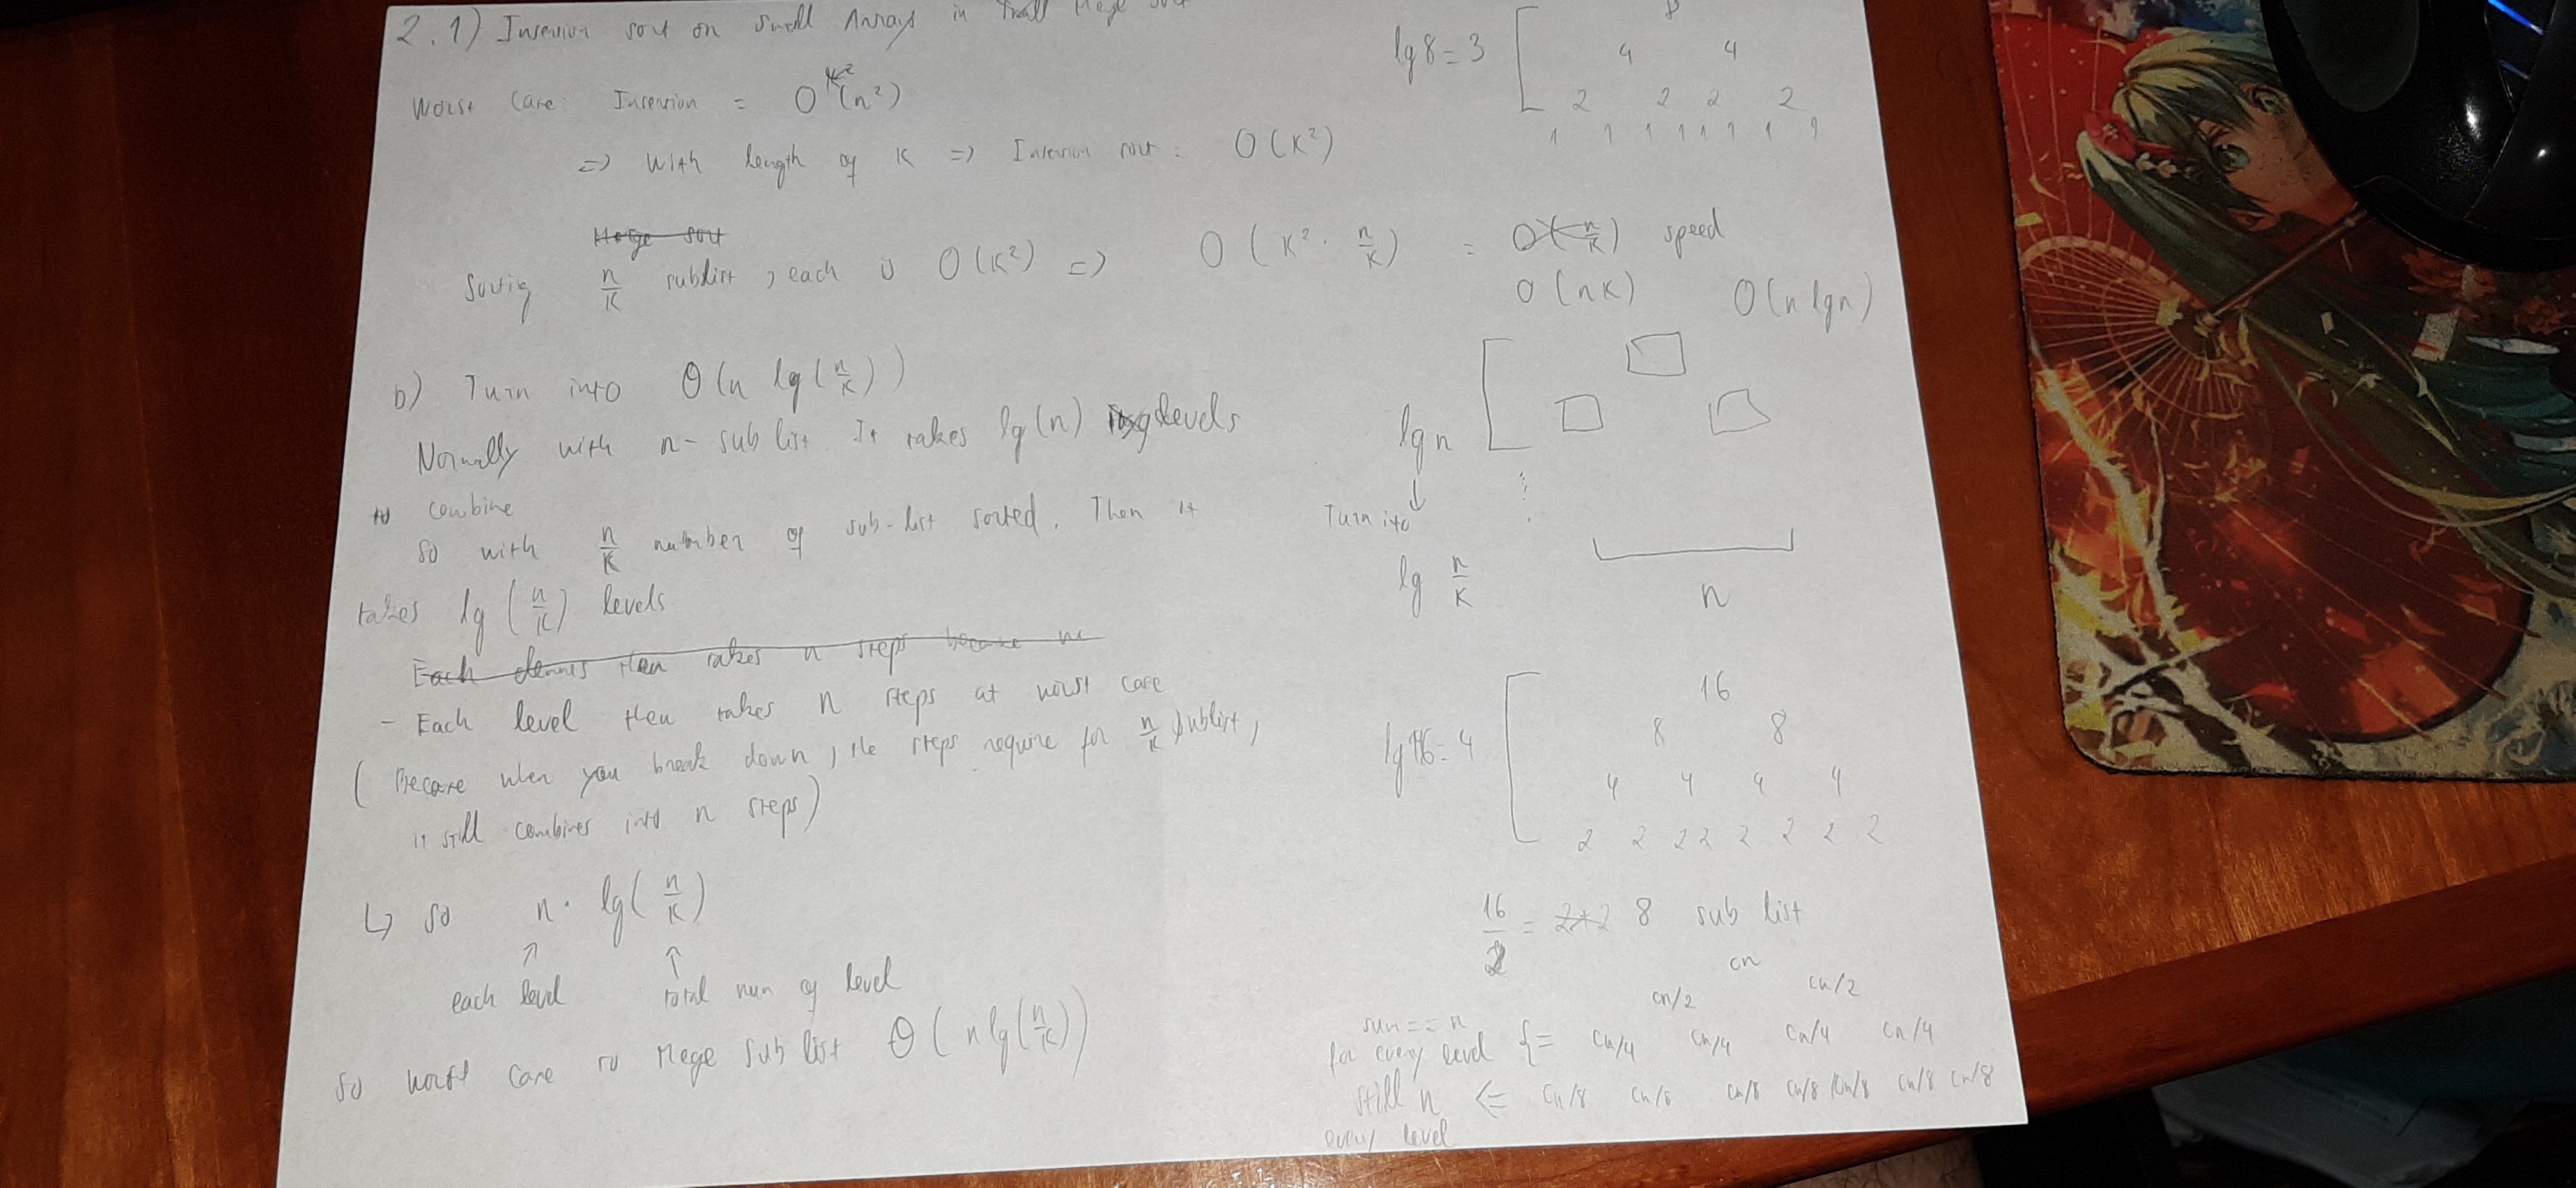 2.1) Insertion sort on small Arrays in Merge sort
Worst case: Insertion = O(n²)
K²
=> With length of K => Insertion sort: O(K²)
Merge sort
Sorting n/K sublist, each is O(K²) => O(K² · n/K) = O(n/K) speed
O(nK) O(n lgn)
b) Turn into Θ(n lg(n/K))
Normally with n-sub list. It takes lg(n) levels
to combine
so with n/K number of sub-list sorted. Then it
takes lg(n/K) levels
Each then takes n steps because
- Each level then takes n steps at worst case
(Because when you break down, the steps require for n/K sublist,
it still combines into n steps)
↳ so n · lg(n/K)
↑ ↑
each level total num of level
so worst case to Mege sub list Θ(n lg(n/K))
lg 8 = 3
8
4 4
2 2 2 2
1 1 1 1 1 1 1 1
lg n
↓
Turn into
lg n/K
n
lg 16 = 4
16
8 8
4 4 4 4
2 2 2 2 2 2 2 2
16/2 = 8 sub list
cn
cn/2 cn/2
sum == n
for every level {= cn/4 cn/4 cn/4 cn/4
still n <= cn/8 cn/8 cn/8 cn/8 cn/8 cn/8 cn/8
every level